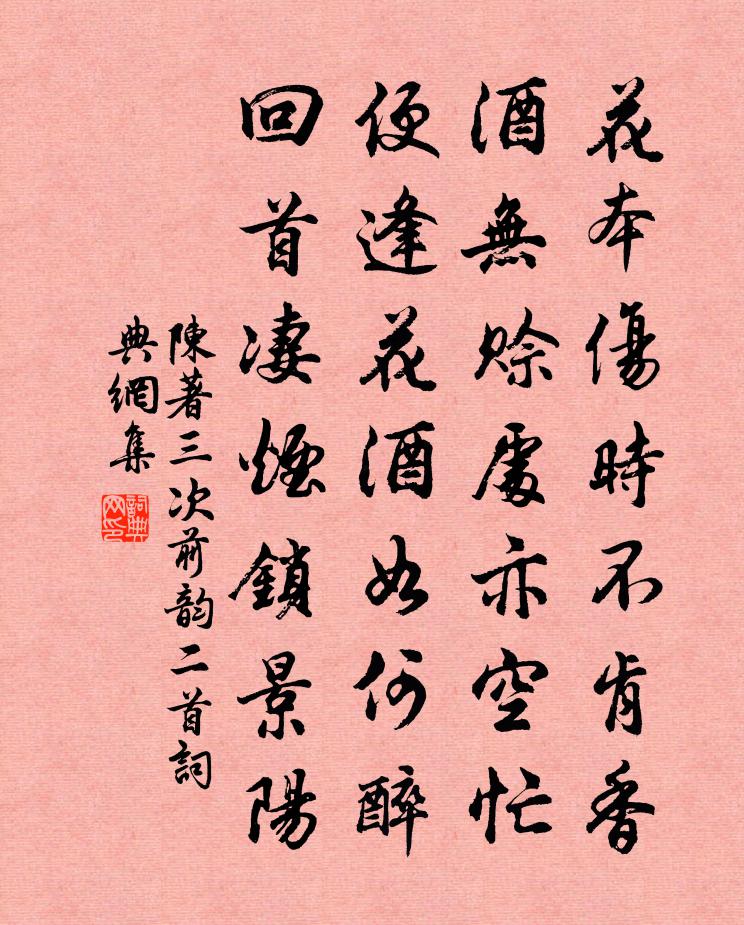 花本傷時不肯香
酒無賒處亦空忙
便逢花酒如何醉
回首淒煙鎖景陽
陳著三次前韵二首詞
典網集
詞典
网印